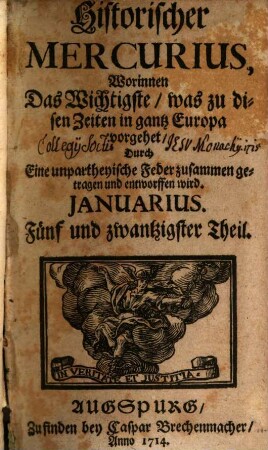 Historischer
MERCURIUS,
Worinnen
Das Wichtigste / was zu di-
sen Zeiten in gantz Europa
Collegij Societ. vorgehet / JESU Monachij
Durch
Eine unpartheyische Feder zusammen ge-
tragen und entworffen wird.
JANUARIUS.
Fünf und zwantzigster Theil.
IN VERITATE ET JUSTITIA.
AUGSPURG /
Zu finden bey Caspar Brechenmacher /
Anno 1714.